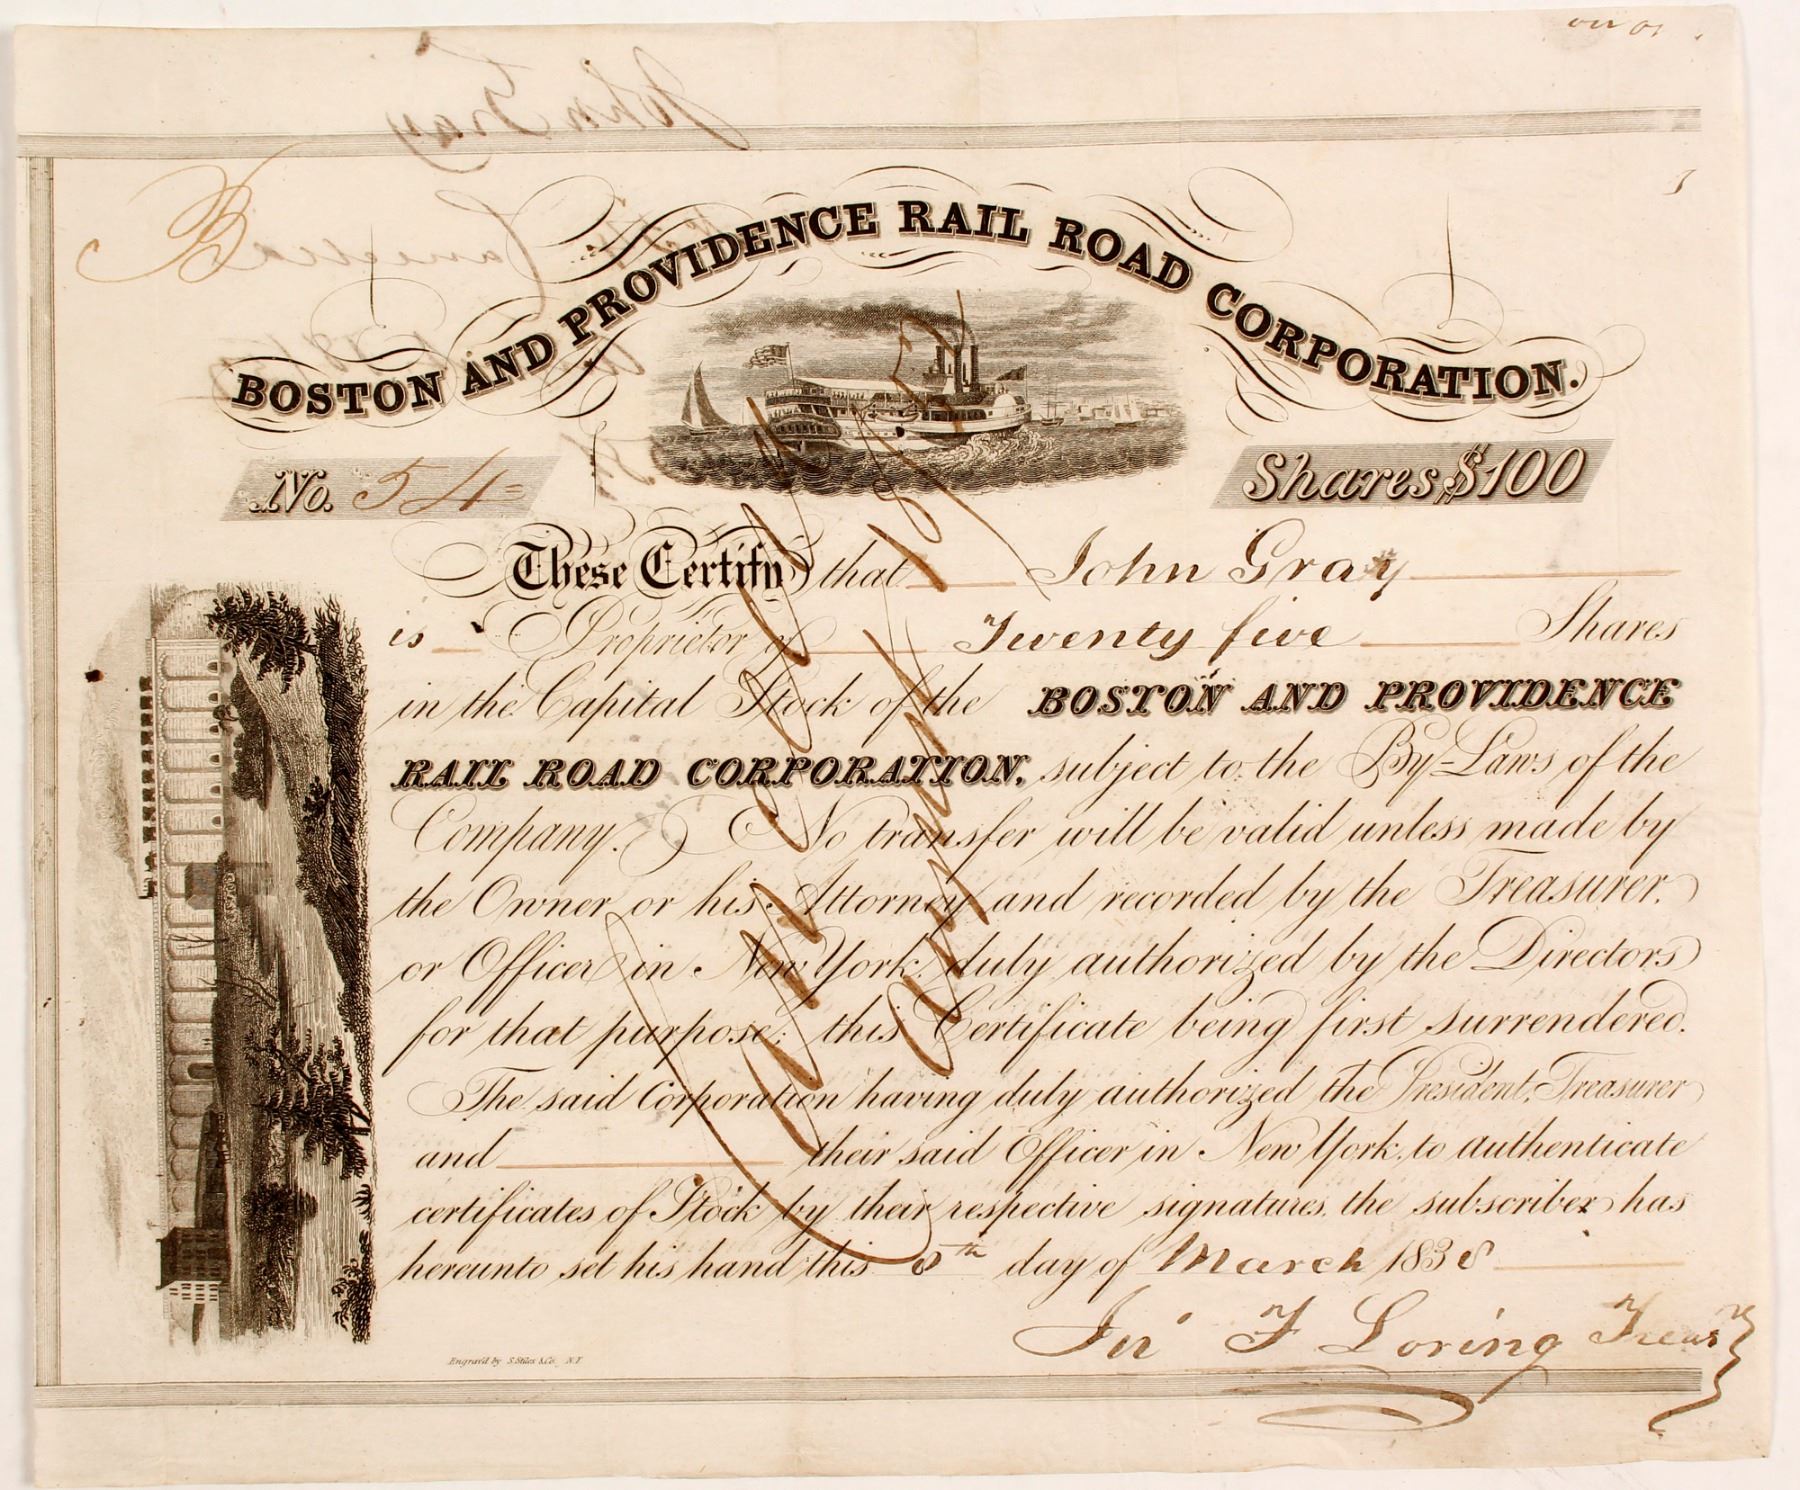 BOSTON AND PROVIDENCE RAIL ROAD CORPORATION.
No. 54
Shares, $100
These Certify that John Gray
is Proprietor of Twenty five Shares
in the Capital Stock of the BOSTON AND PROVIDENCE
RAIL ROAD CORPORATION, subject to the By-Laws of the
Company. No transfer will be valid unless made by
the Owner or his Attorney and recorded by the Treasurer,
or Officer in New York, duly authorized by the Directors
for that purpose; this Certificate being first surrendered.
The said Corporation having duly authorized the President, Treasurer
and their said Officer in New York, to authenticate
certificates of Stock by their respective signatures, the subscriber has
hereunto set his hand this 8th day of March 1838
Jnº F Loring Treasr
Engrav'd by S. Stiles & Co. N.Y.
Cancelled
John Gray